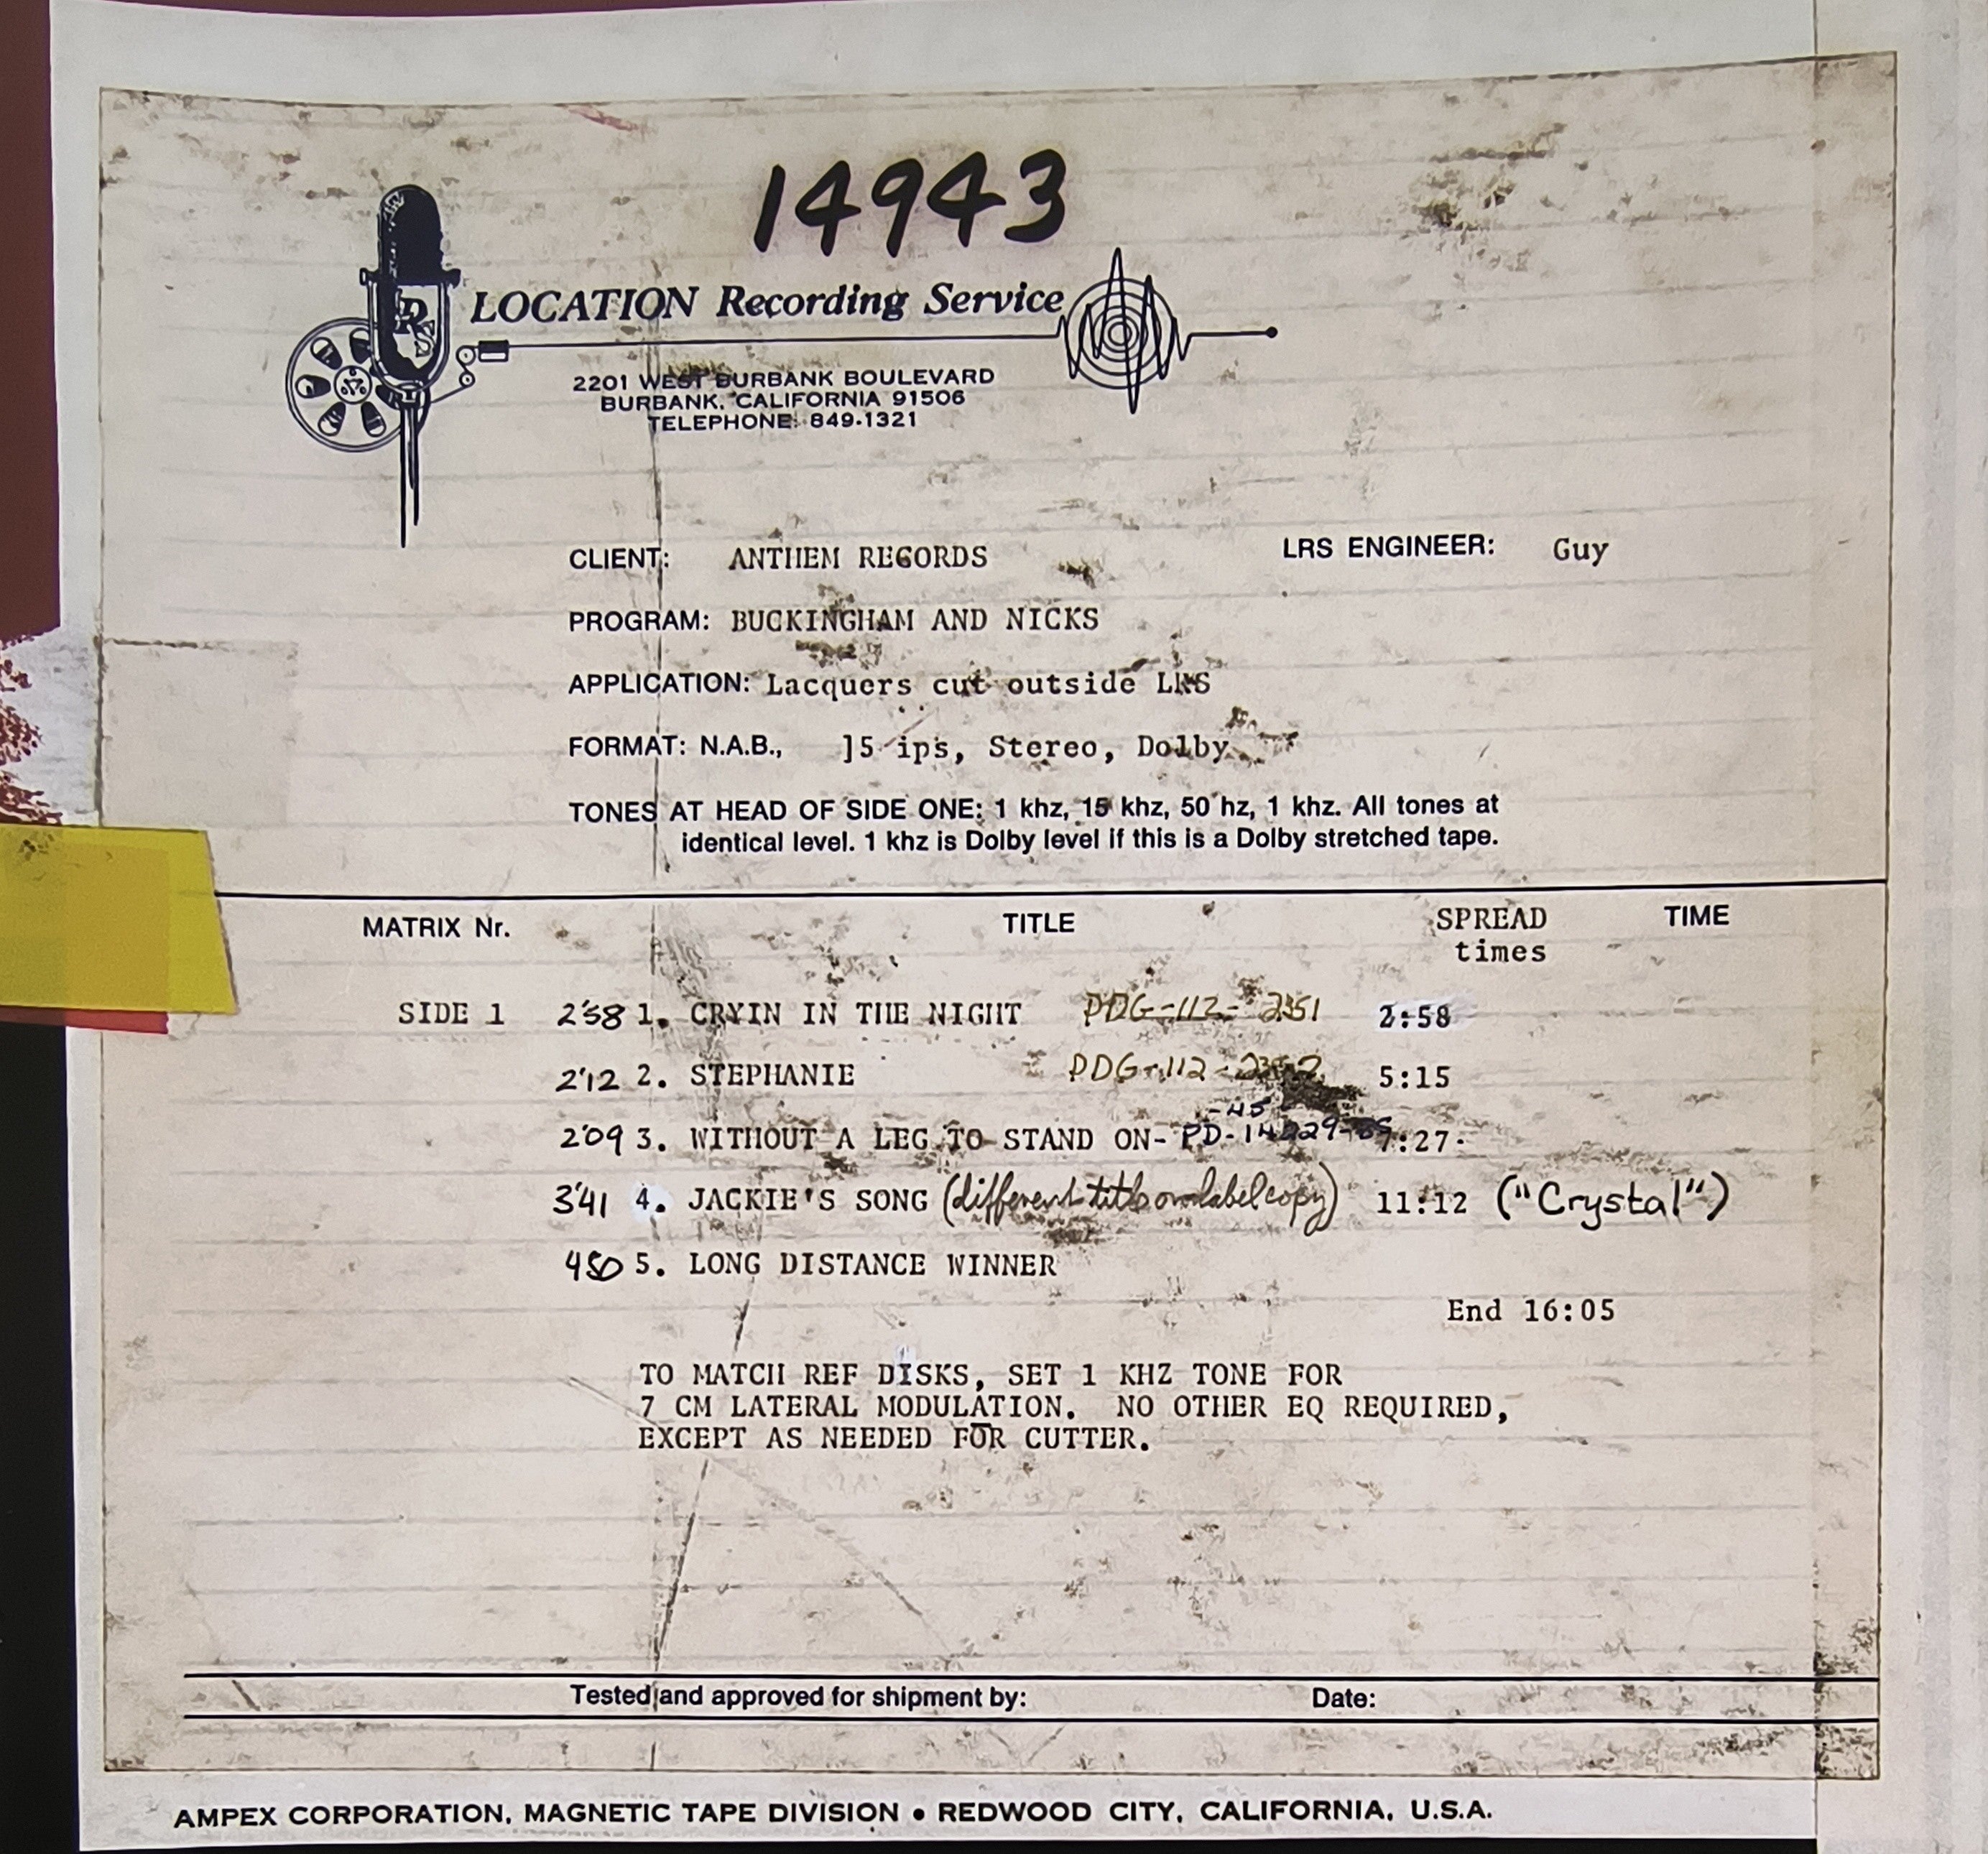 14943
LRS
LOCATION Recording Service
2201 WEST BURBANK BOULEVARD
BURBANK, CALIFORNIA 91506
TELEPHONE: 849-1321
CLIENT: ANTHEM RECORDS LRS ENGINEER: Guy
PROGRAM: BUCKINGHAM AND NICKS
APPLICATION: Lacquers cut outside LRS
FORMAT: N.A.B., ]5 ips, Stereo, Dolby
TONES AT HEAD OF SIDE ONE: 1 khz, 15 khz, 50 hz, 1 khz. All tones at
identical level. 1 khz is Dolby level if this is a Dolby stretched tape.
MATRIX Nr. TITLE SPREAD TIME
times
SIDE 1 2'58 1. CRYIN IN THE NIGHT PDG-112- 2351 2:58
2'12 2. STEPHANIE PDG-112- 5:15
-45
2'09 3. WITHOUT A LEG TO STAND ON- 7:27
3'41 4. JACKIE'S SONG (different title on label copy) 11:12 ("Crystal")
450 5. LONG DISTANCE WINNER
End 16:05
TO MATCH REF DISKS, SET 1 KHZ TONE FOR
7 CM LATERAL MODULATION. NO OTHER EQ REQUIRED,
EXCEPT AS NEEDED FOR CUTTER.
Tested and approved for shipment by: Date:
AMPEX CORPORATION, MAGNETIC TAPE DIVISION • REDWOOD CITY, CALIFORNIA, U.S.A.